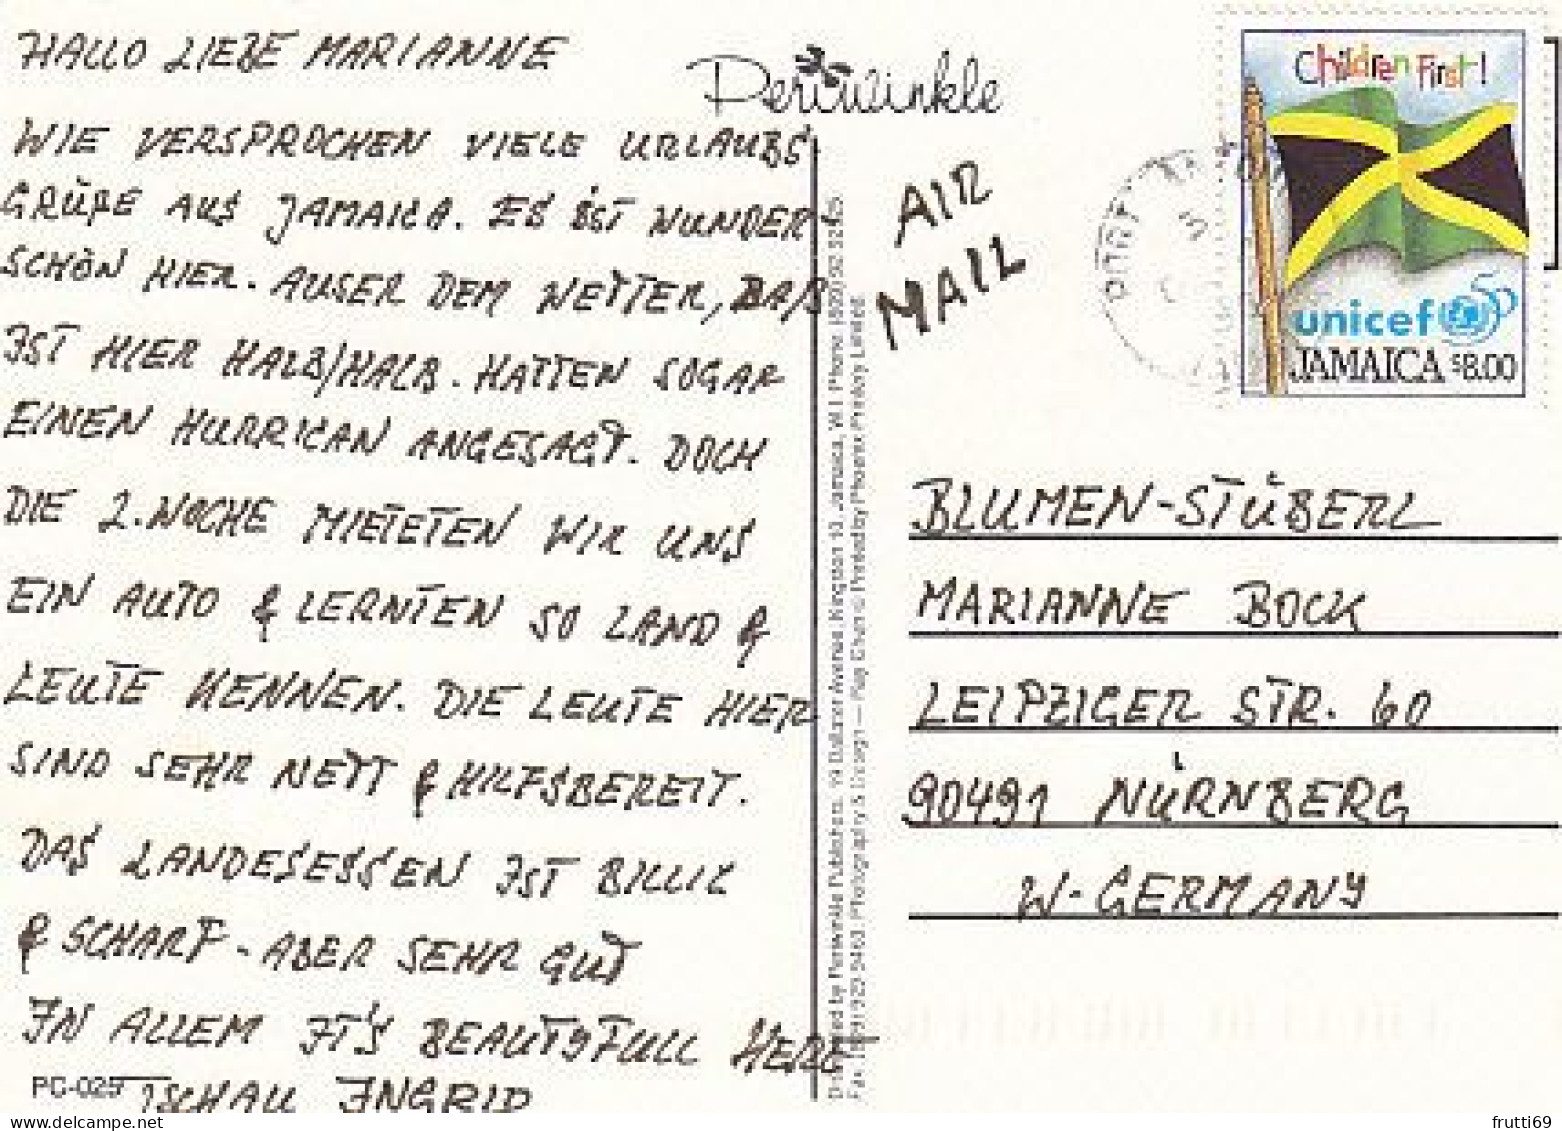 HALLO LIEBE MARIANNE
WIE VERSPROCHEN VIELE URLAUBS
GRÜßE AUS JAMAICA. ES IST WUNDER-
SCHÖN HIER. AUSER DEM WETTER, DAß
IST HIER HALB/HALB. HATTEN SOGAR
EINEN HURRIKAN ANGESAGT. DOCH
DIE 2. WOCHE MIETETEN WIR UNS
EIN AUTO & LERNTEN SO LAND &
LEUTE KENNEN. DIE LEUTE HIER
SIND SEHR NETT & HILFSBEREIT.
DAS LANDESESSEN IST BILLIG
& SCHARF - ABER SEHR GUT
IN ALLEM IT'S BEAUTYFULL HERE
TSCHAU INGRID
PC-025
Periwinkle
AIR
MAIL
Children First!
unicef 50
JAMAICA $8.00
BLUMEN-STÜBERL
MARIANNE BOCK
LEIPZIGER STR. 60
90491 NÜRNBERG
W-GERMANY
Distributed by Periwinkle Publishers, Avenue, Kingston 10, Jamaica, W.I. Phone:
Fax: Photography & Design — Ray Chen Printed by Phoenix Printery Limited.
www.delcampe.net
frutti69